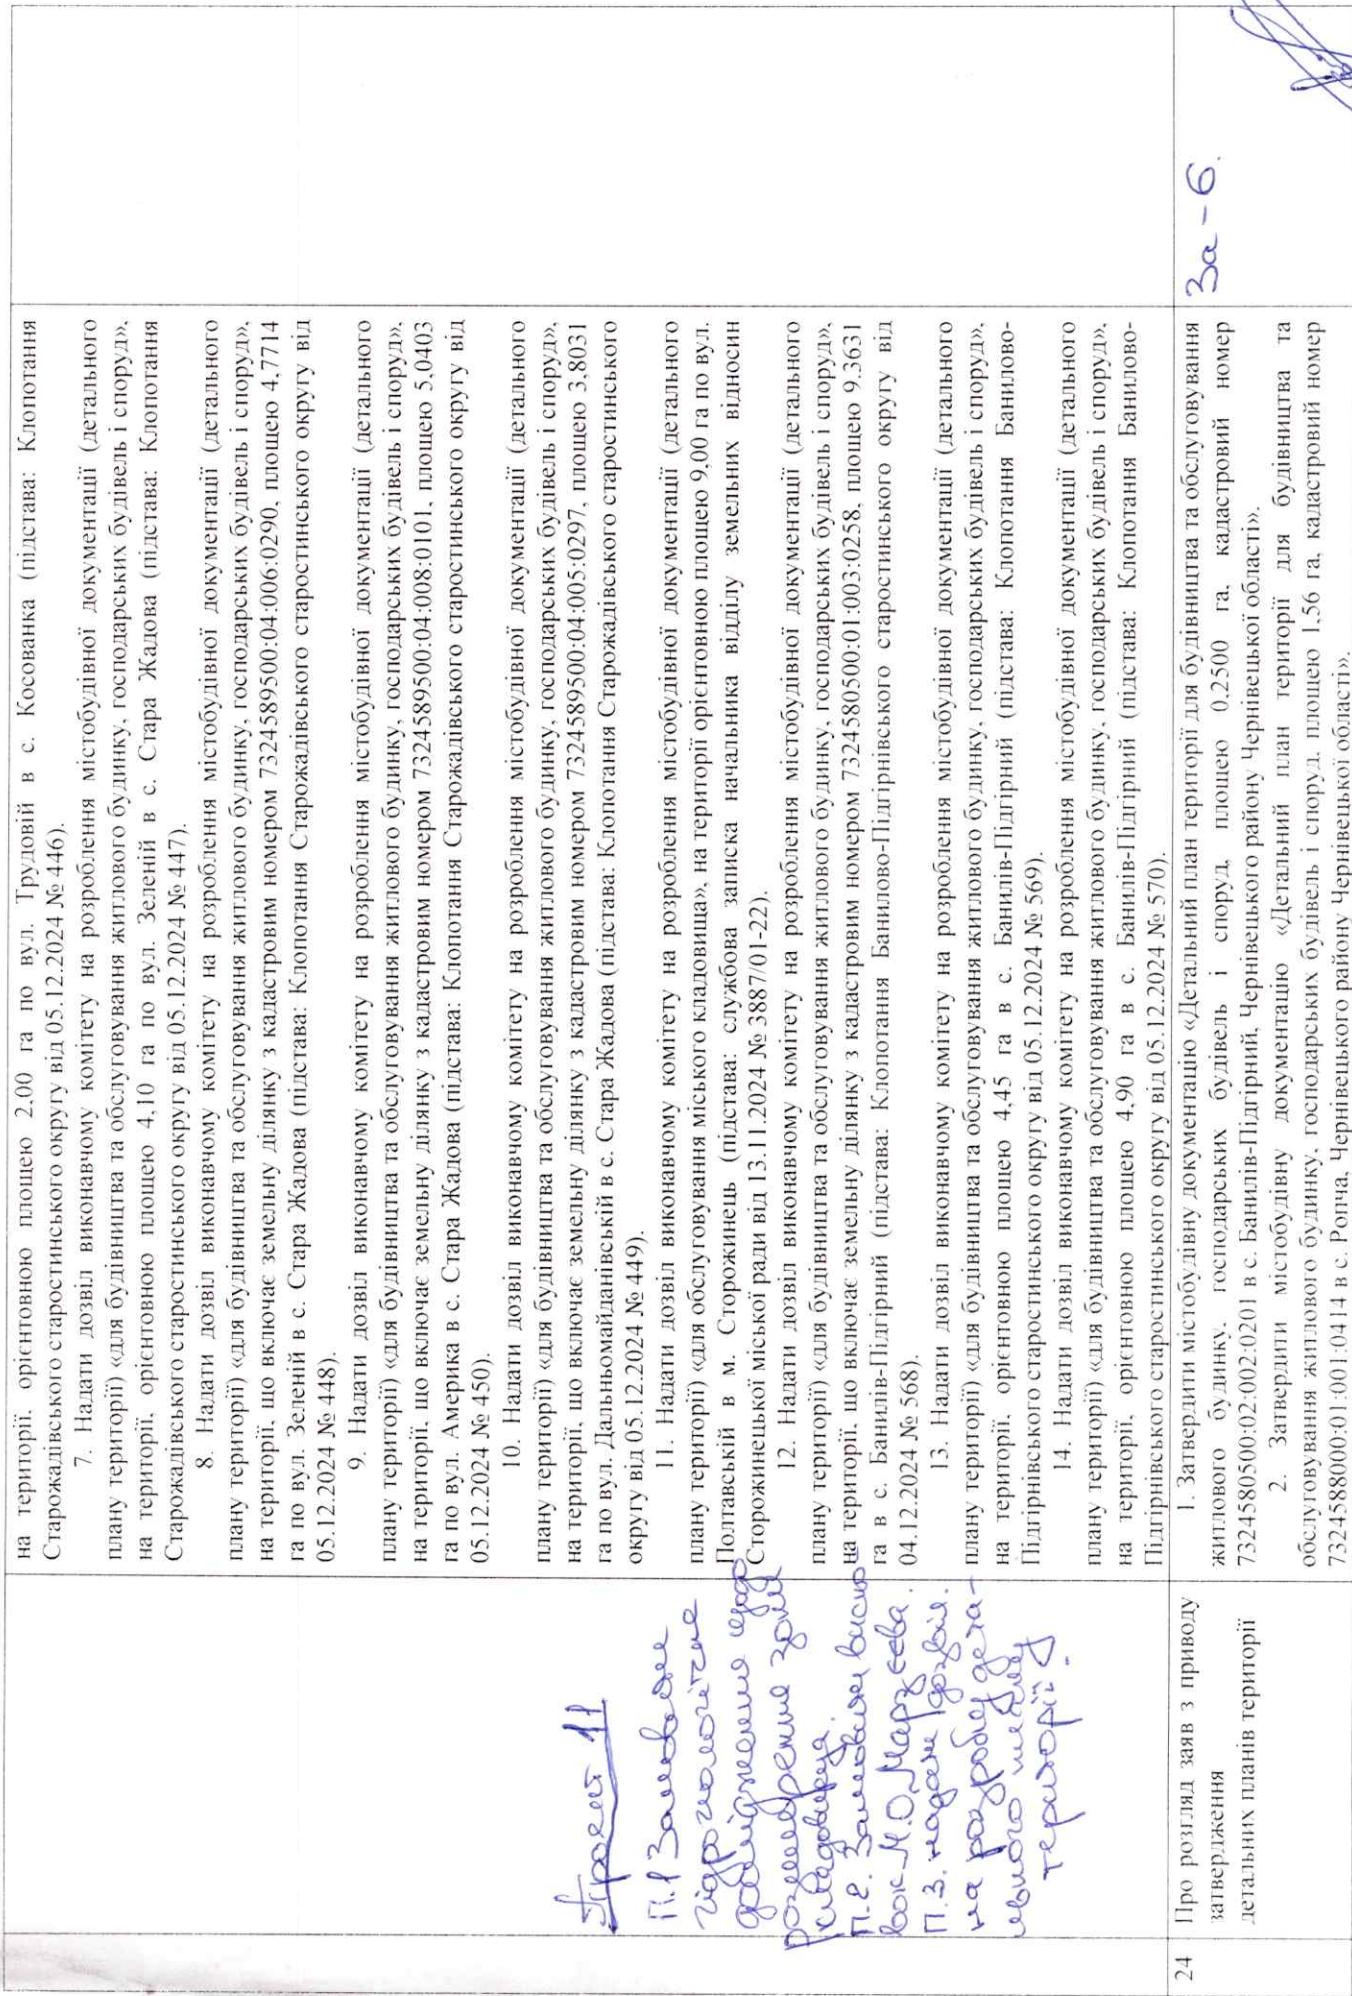 на території, орієнтовною площею 2,00 га по вул. Трудовій в с. Косованка (підстава: Клопотання
Старожадівського старостинського округу від 05.12.2024 № 446).
7. Надати дозвіл виконавчому комітету на розроблення містобудівної документації (детального
плану території) «для будівництва та обслуговування житлового будинку, господарських будівель і споруд»,
на території, орієнтовною площею 4,10 га по вул. Зеленій в с. Стара Жадова (підстава: Клопотання
Старожадівського старостинського округу від 05.12.2024 № 447).
8. Надати дозвіл виконавчому комітету на розроблення містобудівної документації (детального
плану території) «для будівництва та обслуговування житлового будинку, господарських будівель і споруд»,
на території, що включає земельну ділянку з кадастровим номером 7324589500:04:006:0290, площею 4,7714
га по вул. Зеленій в с. Стара Жадова (підстава: Клопотання Старожадівського старостинського округу від
05.12.2024 № 448).
9. Надати дозвіл виконавчому комітету на розроблення містобудівної документації (детального
плану території) «для будівництва та обслуговування житлового будинку, господарських будівель і споруд»,
на території, що включає земельну ділянку з кадастровим номером 7324589500:04:008:0101, площею 5,0403
га по вул. Америка в с. Стара Жадова (підстава: Клопотання Старожадівського старостинського округу від
05.12.2024 № 450).
10. Надати дозвіл виконавчому комітету на розроблення містобудівної документації (детального
плану території) «для будівництва та обслуговування житлового будинку, господарських будівель і споруд»,
на території, що включає земельну ділянку з кадастровим номером 7324589500:04:005:0297, площею 3,8031
га по вул. Дальньомайданівській в с. Стара Жадова (підстава: Клопотання Старожадівського старостинського
округу від 05.12.2024 № 449).
11. Надати дозвіл виконавчому комітету на розроблення містобудівної документації (детального
плану території) «для обслуговування міського кладовища», на території орієнтовною площею 9,00 га по вул.
Полтавській в м. Сторожинець (підстава: службова записка начальника відділу земельних відносин
Сторожинецької міської ради від 13.11.2024 № 3887/01-22).
12. Надати дозвіл виконавчому комітету на розроблення містобудівної документації (детального
плану території) «для будівництва та обслуговування житлового будинку, господарських будівель і споруд»,
на території, що включає земельну ділянку з кадастровим номером 7324580500:01:003:0258, площею 9,3631
га в с. Банилів-Підгірний (підстава: Клопотання Банилово-Підгірнівського старостинського округу від
04.12.2024 № 568).
13. Надати дозвіл виконавчому комітету на розроблення містобудівної документації (детального
плану території) «для будівництва та обслуговування житлового будинку, господарських будівель і споруд»,
на території, орієнтовною площею 4,45 га в с. Банилів-Підгірний (підстава: Клопотання Банилово-
Підгірнівського старостинського округу від 05.12.2024 № 569).
14. Надати дозвіл виконавчому комітету на розроблення містобудівної документації (детального
плану території) «для будівництва та обслуговування житлового будинку, господарських будівель і споруд»,
на території, орієнтовною площею 4,90 га в с. Банилів-Підгірний (підстава: Клопотання Банилово-
Підгірнівського старостинського округу від 05.12.2024 № 570).
11
П.1 Замовлене
гідрогеологічне
дослідження щодо
розширення зони
кладовища.
П.2. Замовлен висно
вок М.О. Марзєєва.
П.3. надане дозвіл.
на розробку дета-
льного плану
території
24
Про розгляд заяв з приводу
затвердження
детальних планів території
1. Затвердити містобудівну документацію «Детальний план території для будівництва та обслуговування
житлового будинку, господарських будівель і споруд, площею 0,2500 га, кадастровий номер
7324580500:02:002:0201 в с. Банилів-Підгірний, Чернівецького району Чернівецької області».
2. Затвердити містобудівну документацію «Детальний план території для будівництва та
обслуговування житлового будинку, господарських будівель і споруд, площею 1,56 га, кадастровий номер
7324588000:01:001:0414 в с. Ропча, Чернівецького району Чернівецької області».
За - 6.